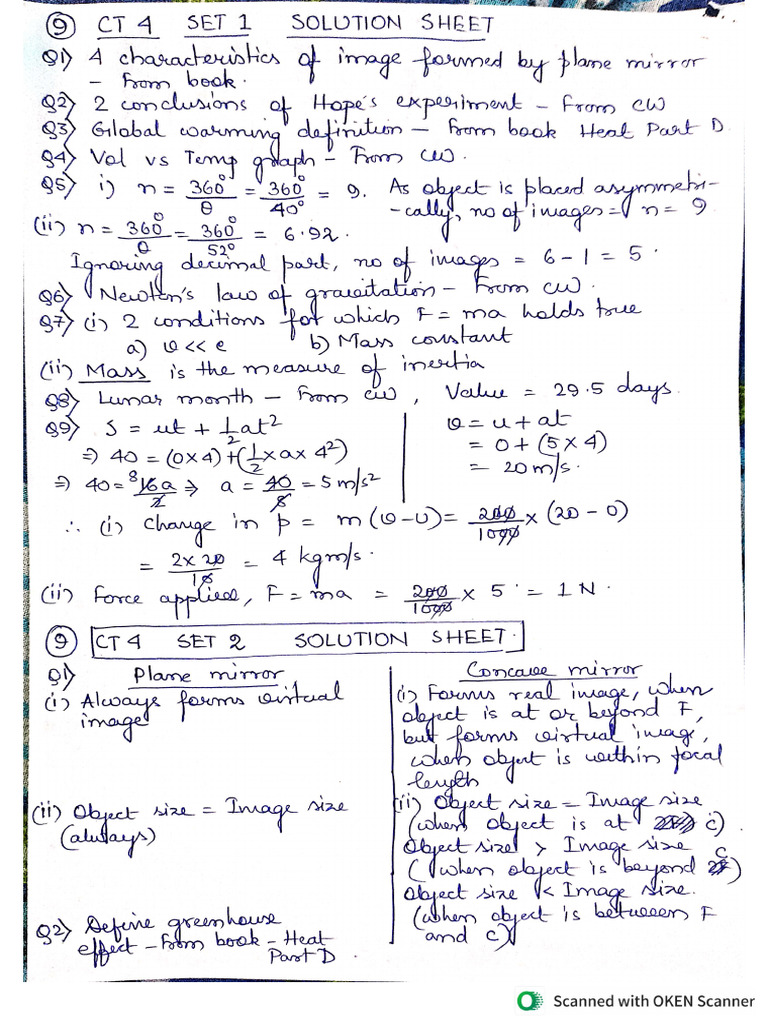 ⑨ CT 4 SET 1 SOLUTION SHEET
Q1) 4 characteristics of image formed by plane mirror
- From book.
Q2) 2 conclusions of Hope's experiment - From CW
Q3) Global warming definition - From book Heat Part D.
Q4) Vol vs Temp graph - From CW.
Q5) i) n = 360°/θ = 360°/40° = 9. As object is placed asymmetri-
-cally, no of images = n = 9
(ii) n = 360°/θ = 360°/52° = 6.92.
Ignoring decimal part, no of images = 6 - 1 = 5.
Q6) Newton's law of gravitation - From CW.
Q7) (i) 2 conditions for which F = ma holds true
a) v << c b) Mass constant
(ii) Mass is the measure of inertia
Q8) Lunar month - From CW, Value = 29.5 days.
Q9) S = ut + 1/2 at²
⇒ 40 = (0×4) + (1/2 × a × 4²)
⇒ 40 = 8 16a/2 ⇒ a = 40/8 = 5 m/s²
v = u + at
= 0 + (5 × 4)
= 20 m/s.
∴ (i) Change in p = m(v-u) = 200/1000 × (20 - 0)
= 2 × 20/10 = 4 kgm/s.
(ii) Force applied, F = ma = 200/1000 × 5 = 1 N.
⑨ CT 4 SET 2 SOLUTION SHEET.
Q1) Plane mirror
(i) Always forms virtual
image
(ii) Object size = Image size
(always)
Concave mirror
(i) Forms real image, when
object is at or beyond F,
but forms virtual image,
when object is within focal
length
(ii) Object size = Image size
(when object is at C).
Object size > Image size
(when object is beyond C)
Object size < Image size.
(when object is between F
and C)
Q2) Define greenhouse
effect - From book - Heat
Part D.
Scanned with OKEN Scanner